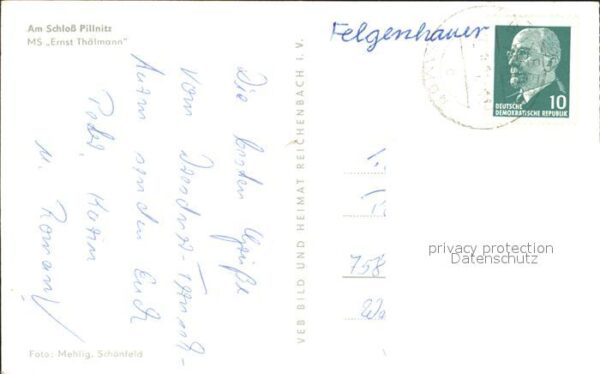 Am Schloß Pillnitz
MS „Ernst Thälmann"
Felgenhauer
DEUTSCHE
DEMOKRATISCHE REPUBLIK
10
Die besten Grüße
vom
senden Euch
Peter, Karin
u. Roman
VEB BILD UND HEIMAT REICHENBACH I. V.
758
privacy protection
Datenschutz
Foto: Mehlig, Schönfeld